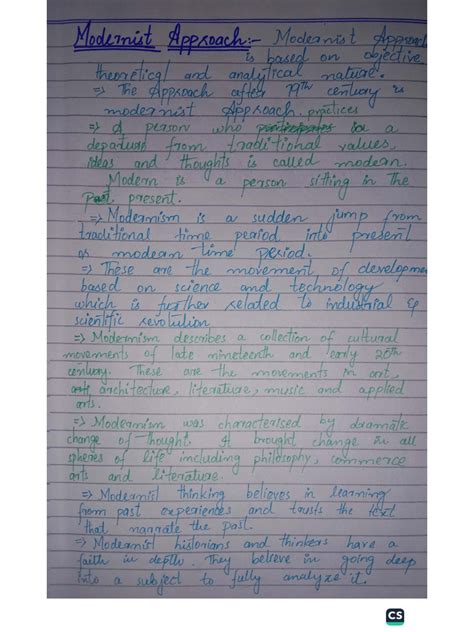 Modernist Approach:- Modernist Approach
is based on objective,
theoretical and analytical nature.
=> The Approach after 19th century is
modernist Approach. practices
=> A person who is a
departure from traditional values,
ideas and thoughts is called modern.
Modern is a person sitting in the
present.
=> Modernism is a sudden jump from
traditional time period into present
or modern time period.
=> These are the movement of developmen
based on science and technology
which is further related to industrial &
scientific revolution
=> Modernism describes a collection of cultural
movements of late nineteenth and early 20th
century. These are the movements in art,
arts architecture, literature, music and applied
arts.
=> Modernism was characterised by dramatic
change of thought. It brought change in all
spheres of life including philosophy, commerce
arts and literature.
=> Modernist thinking believes in learning
from past experiences and trusts the text
that narrate the past.
=> Modernist historians and thinkers have a
faith in depth. They believe in going deep
into a subject to fully analyze it.
CS